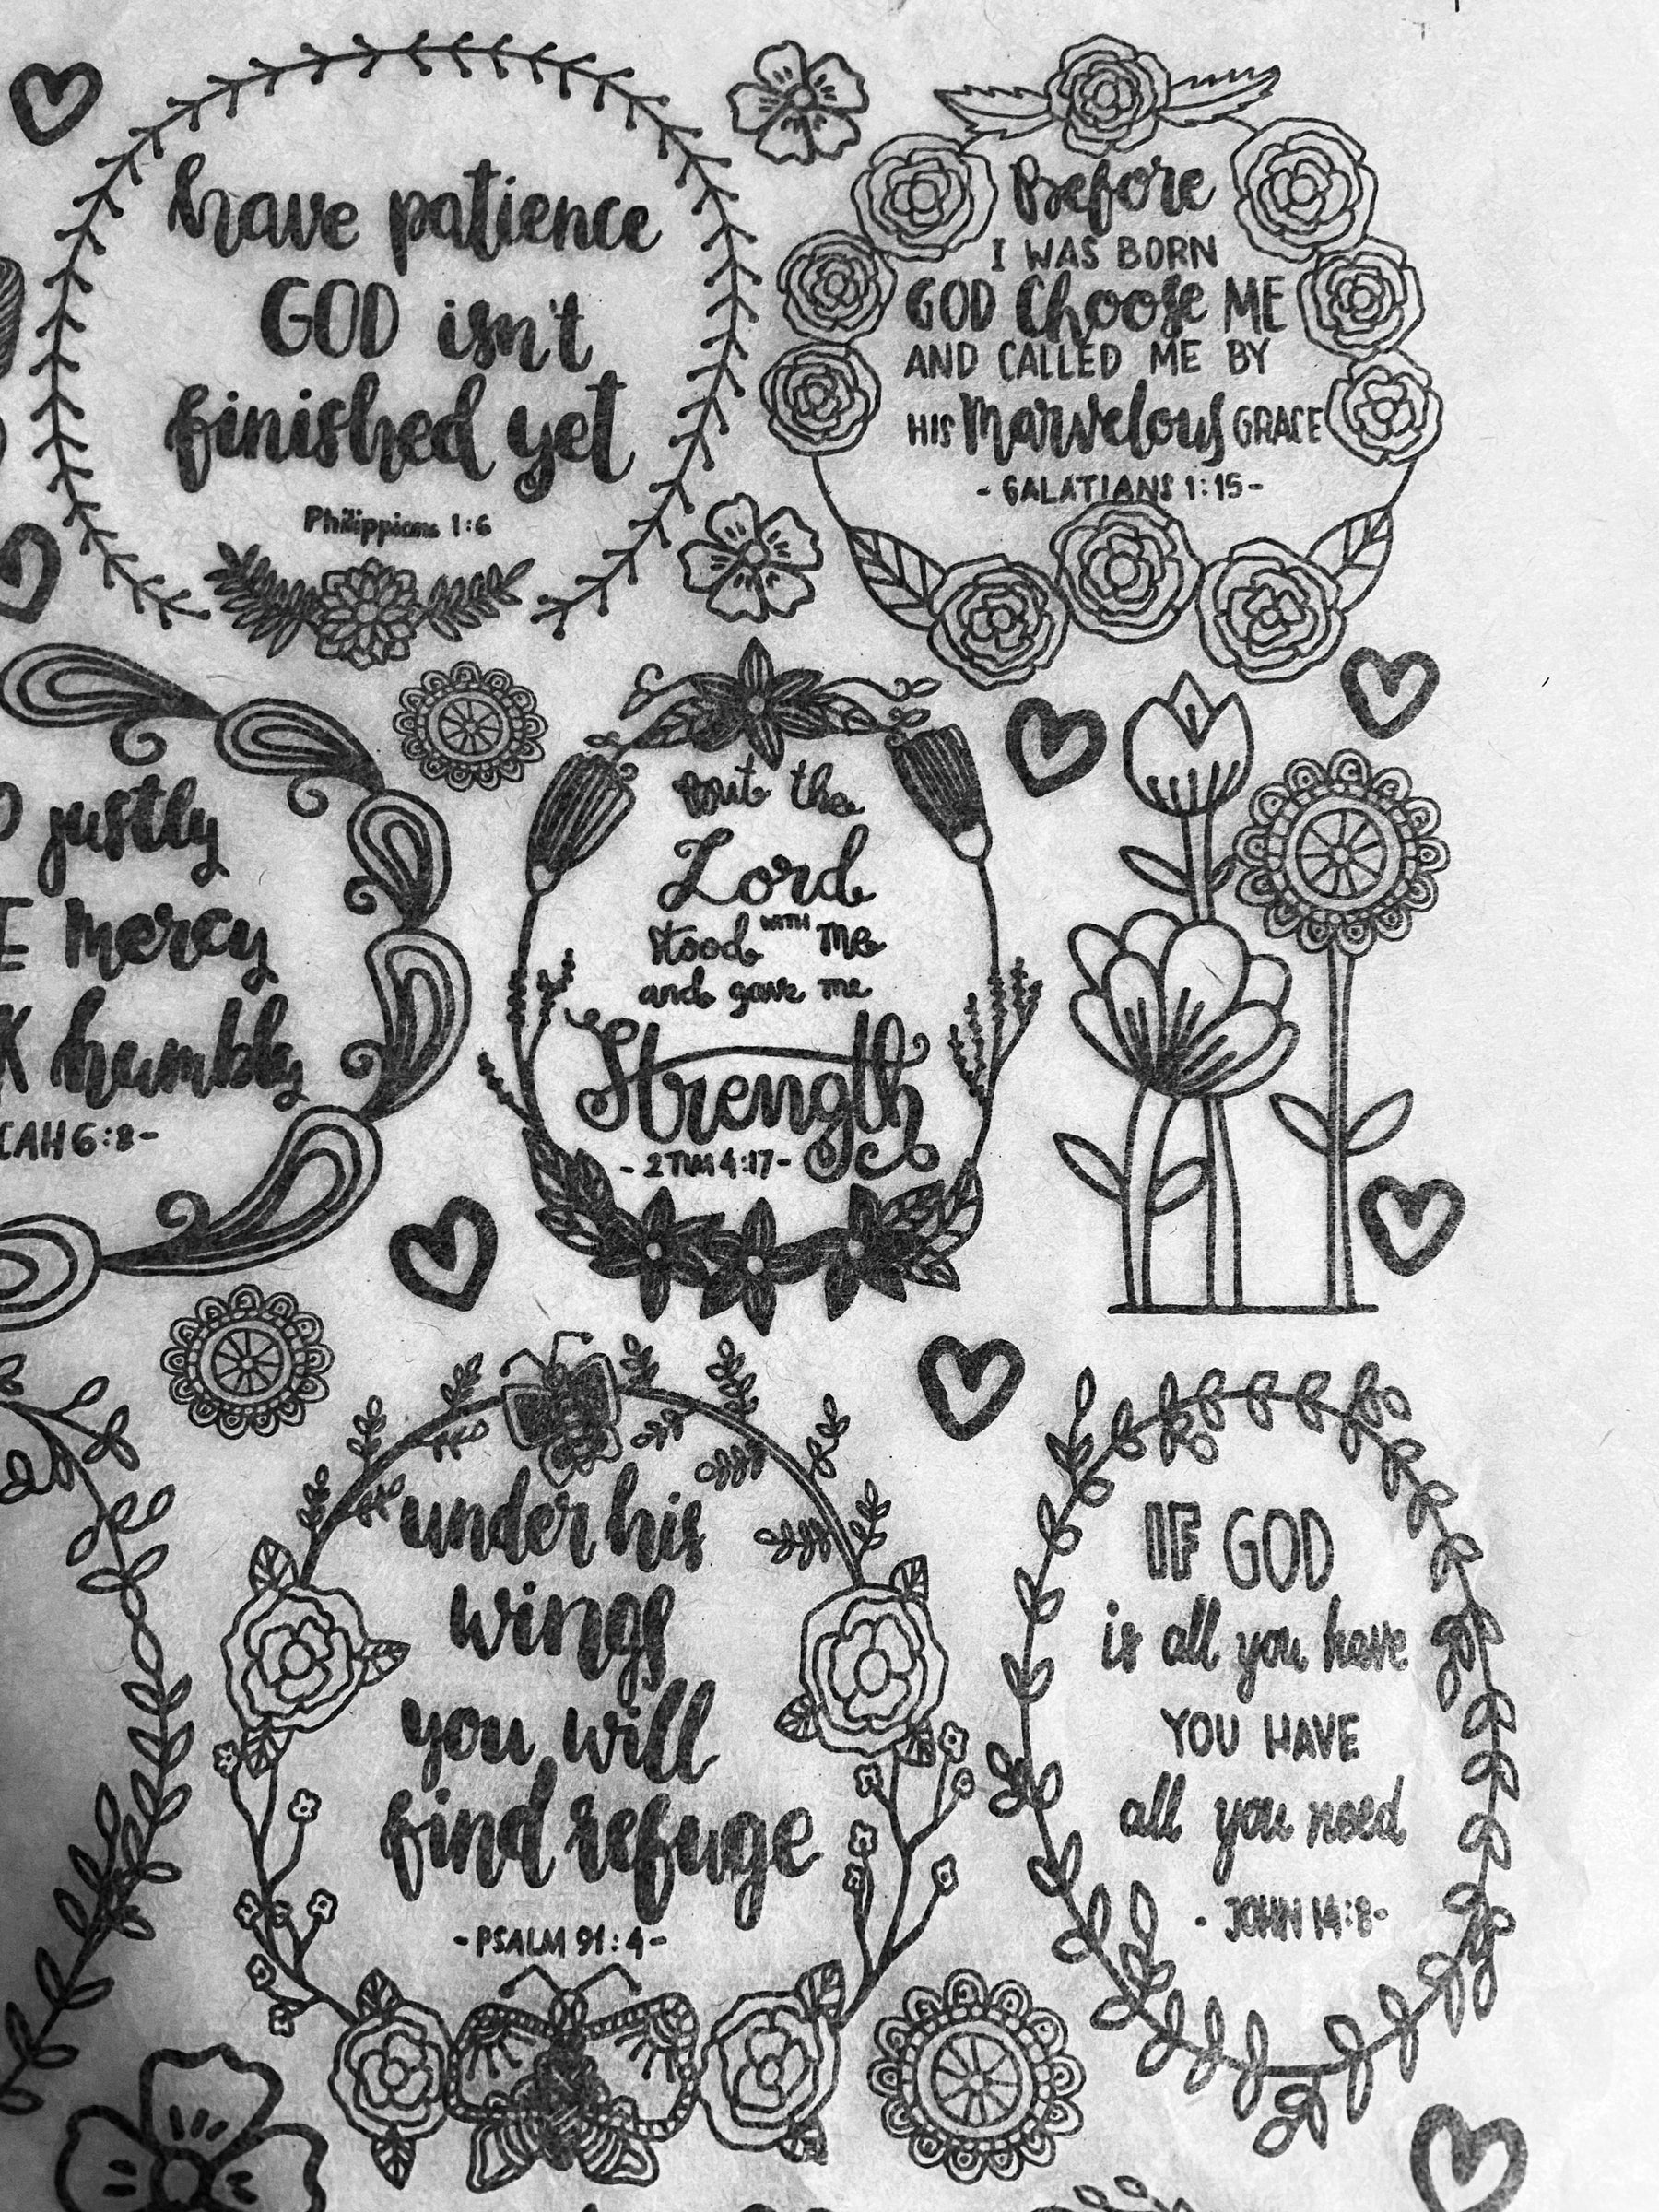 have patience
GOD isn't
finished yet
Philippians 1:6
Before
I WAS BORN
GOD Choose ME
AND CALLED ME BY
HIS Marvelous GRACE
- GALATIANS 1:15 -
justly
mercy
humbly
CAH 6:8 -
but the
Lord
stood WITH me
and gave me
Strength
- 2 TIM 4:17 -
under his
wings
you will
find refuge
- PSALM 91:4 -
IF GOD
is all you have
YOU HAVE
all you need
- JOHN 14:8 -